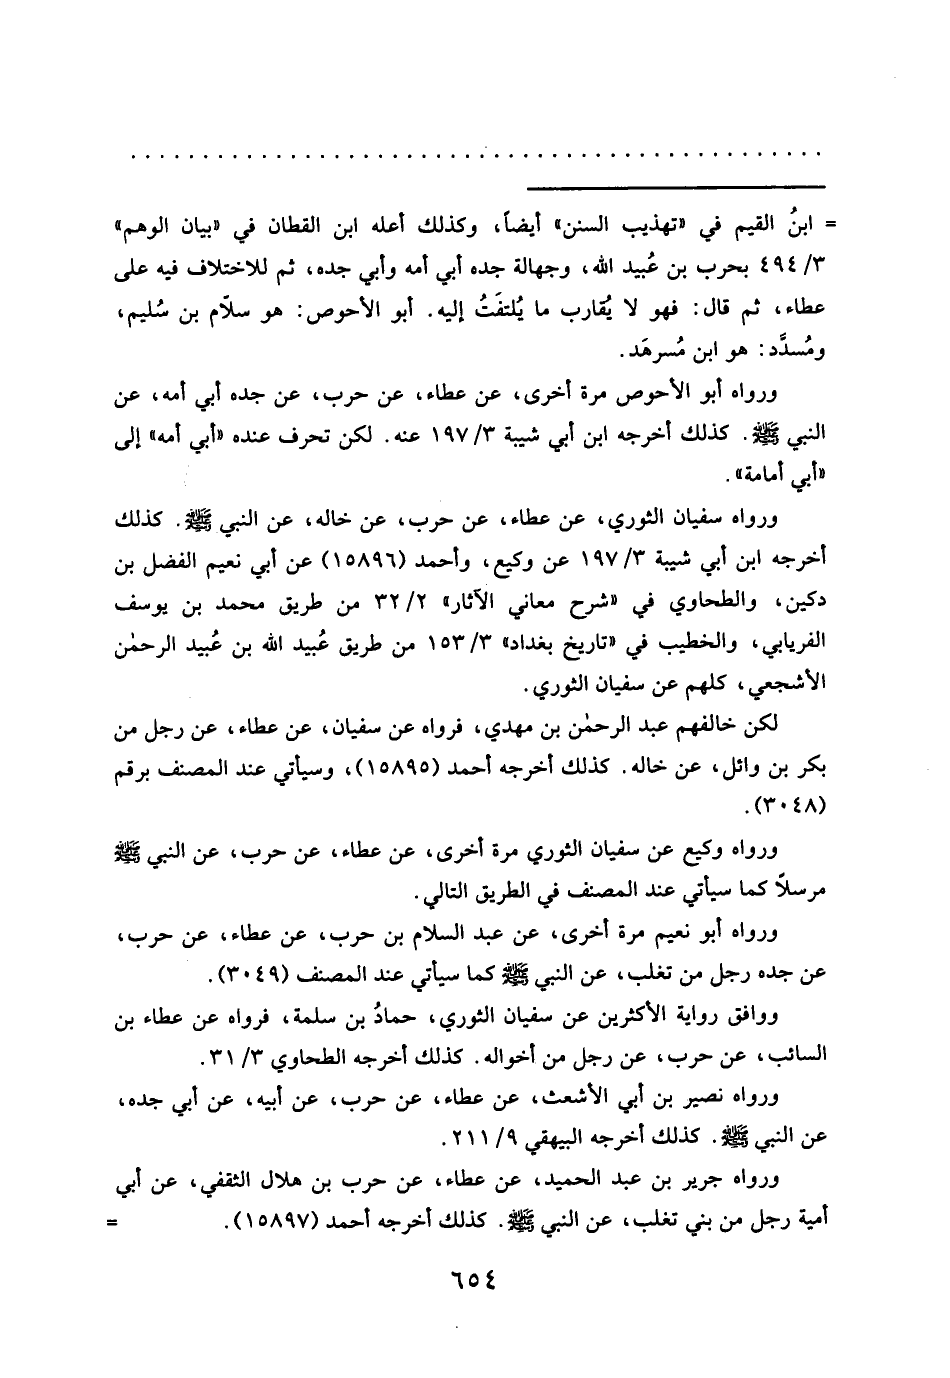 = ابنُ القيم في «تهذيب السنن» أيضاً، وكذلك أعله ابن القطان في «بيان الوهم»
٣/ ٤٩٤ بحرب بن عُبيد الله، وجهالة جده أبي أمه وأبي جده، ثم للاختلاف فيه على
عطاء، ثم قال: فهو لا يُقارب ما يُلتفَتُ إليه. أبو الأحوص: هو سلّام بن سُليم،
ومُسدَّد: هو ابن مُسرهَد.
ورواه أبو الأحوص مرة أخرى، عن عطاء، عن حرب، عن جده أبي أمه، عن
النبي ﷺ. كذلك أخرجه ابن أبي شيبة ٣/ ١٩٧ عنه. لكن تحرف عنده «أبي أمه» إلى
«أبي أمامة».
ورواه سفيان الثوري، عن عطاء، عن حرب، عن خاله، عن النبي ﷺ. كذلك
أخرجه ابن أبي شيبة ٣/ ١٩٧ عن وكيع، وأحمد (١٥٨٩٦) عن أبي نعيم الفضل بن
دكين، والطحاوي في «شرح معاني الآثار» ٢/ ٣٢ من طريق محمد بن يوسف
الفريابي، والخطيب في «تاريخ بغداد» ٣/ ١٥٣ من طريق عُبيد الله بن عُبيد الرحمٰن
الأشجعي، كلهم عن سفيان الثوري.
لكن خالفهم عبد الرحمٰن بن مهدي، فرواه عن سفيان، عن عطاء، عن رجل من
بكر بن وائل، عن خاله. كذلك أخرجه أحمد (١٥٨٩٥)، وسيأتي عند المصنف برقم
(٣٠٤٨).
ورواه وكيع عن سفيان الثوري مرة أخرى، عن عطاء، عن حرب، عن النبي ﷺ
مرسلاً كما سيأتي عند المصنف في الطريق التالي.
ورواه أبو نعيم مرة أخرى، عن عبد السلام بن حرب، عن عطاء، عن حرب،
عن جده رجل من تغلب، عن النبي ﷺ كما سيأتي عند المصنف (٣٠٤٩).
ووافق رواية الأكثرين عن سفيان الثوري، حمادُ بن سلمة، فرواه عن عطاء بن
السائب، عن حرب، عن رجل من أخواله. كذلك أخرجه الطحاوي ٣/ ٣١.
ورواه نصير بن أبي الأشعث، عن عطاء، عن حرب، عن أبيه، عن أبي جده،
عن النبي ﷺ. كذلك أخرجه البيهقي ٩/ ٢١١.
ورواه جرير بن عبد الحميد، عن عطاء، عن حرب بن هلال الثقفي، عن أبي
أمية رجل من بني تغلب، عن النبي ﷺ. كذلك أخرجه أحمد (١٥٨٩٧). =
٦٥٤